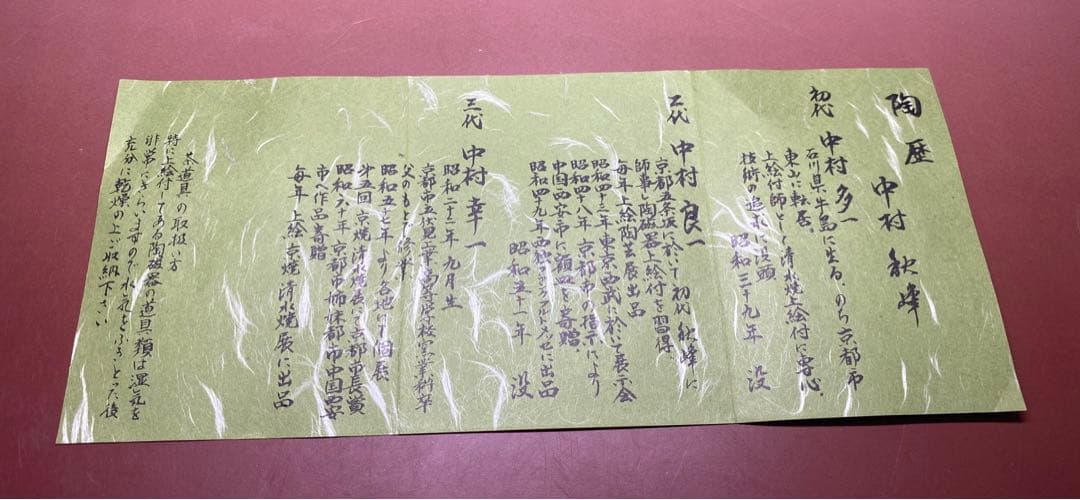 陶歴
中村 秋峰
初代 中村多一
石川県牛島に生る、のち京都市
東山に転居、
上絵付師として清水焼上絵付に専心、
技術の追求に没頭
昭和三十九年 没
二代 中村良一
京都五条坂に於いて初代秋峰に
師事し陶磁器上絵付を習得
毎年上絵陶芸展出品
昭和四十三年東京西武に於いて展示会
昭和四十八年京都市の指示により
中国西安市に額皿を寄贈、
昭和四十九年西独フランクフルトメッセに出品
昭和五十一年 没
三代 中村幸一
昭和二十二年九月生
京都市立伏見工業高等学校窯業科卒
父のもとで修業
昭和五十三年より各地にて個展
第五回京焼清水焼展にて京都市長賞
昭和六十年京都市姉妹都市中国西安
市へ作品寄贈
毎年上絵、京焼清水焼展に出品
茶道具の取扱い方
特に上絵付してある陶磁器の道具類は湿気を
非常にきらいますので水気をふきとった後
充分に乾燥の上ご収納下さい